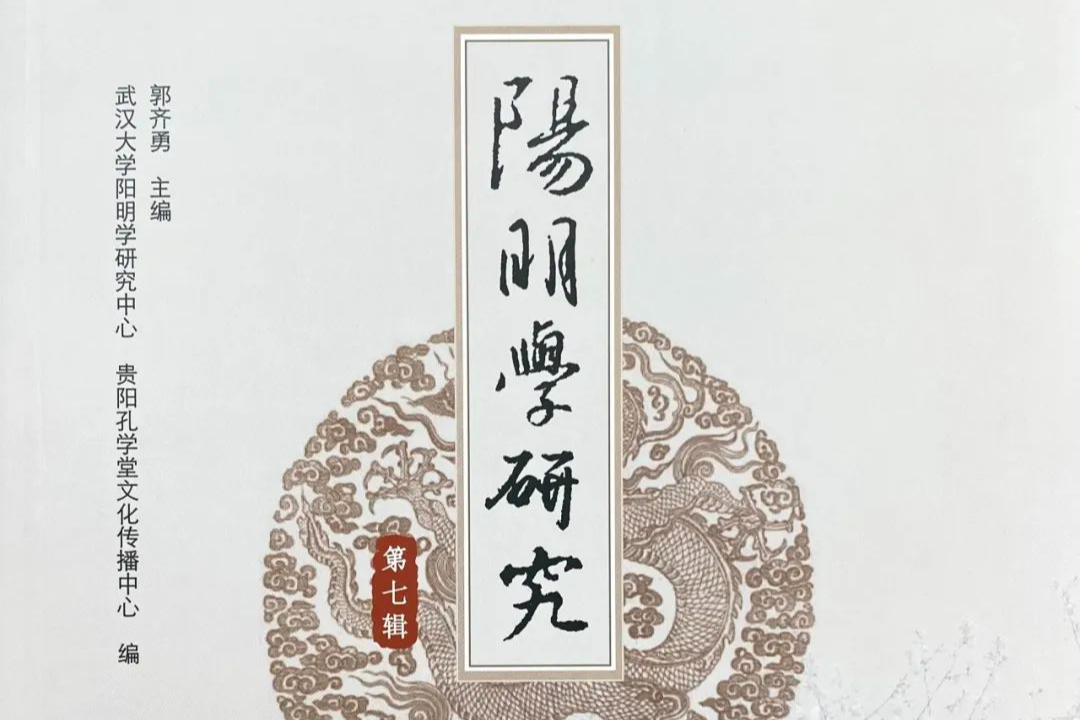 陽明學研究
第七辑
郭齐勇 主编
武汉大学阳明学研究中心 贵阳孔学堂文化传播中心 编